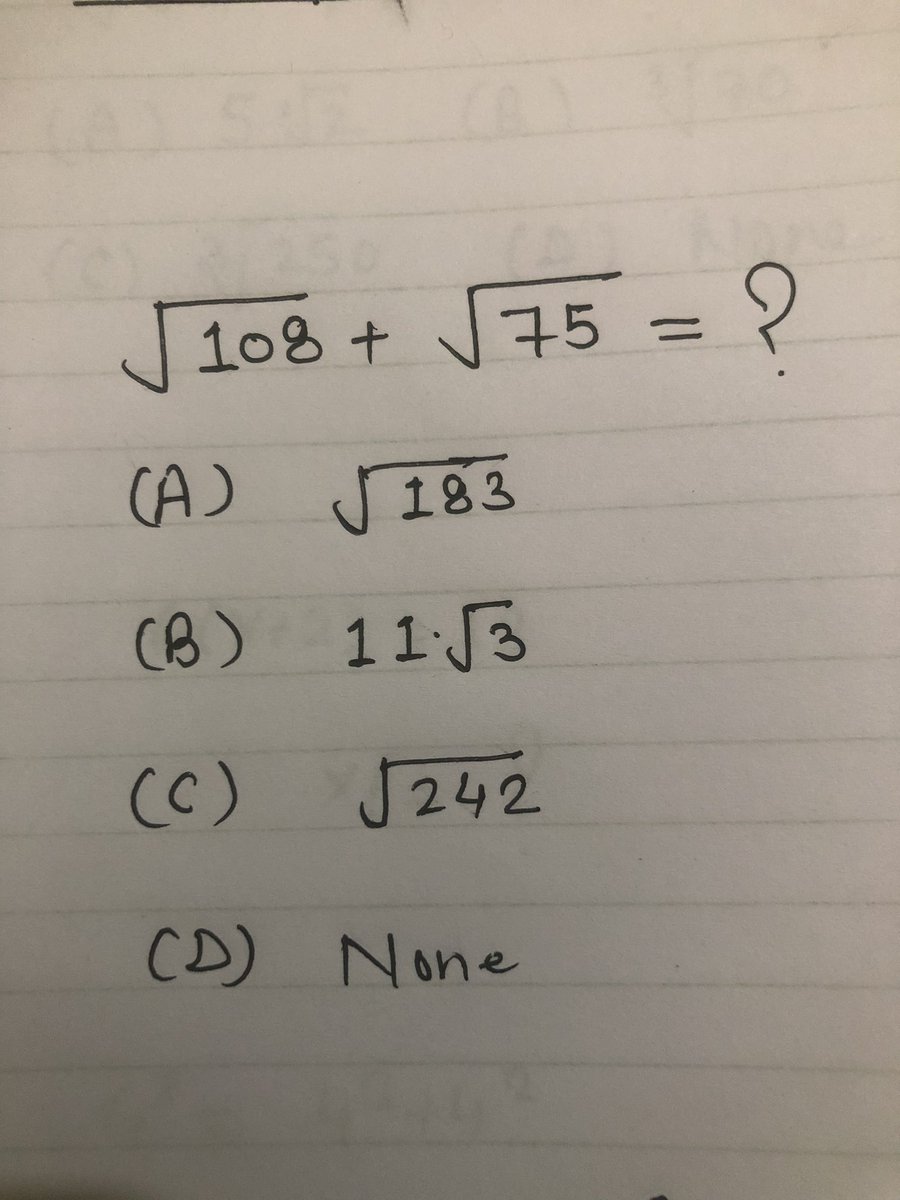 √108 + √75 = ?
(A) √183
(B) 11·√3
(C) √242
(D) None